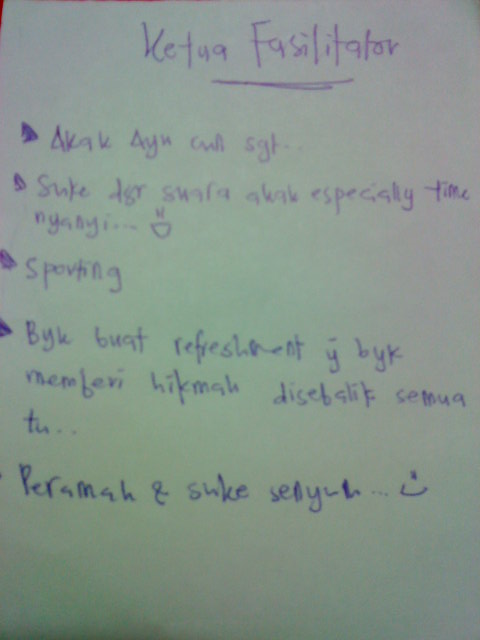 Ketua Fasilitator
Akak Ayu cun sgt..
Suke dgr suara akak especially time
nyanyi...
Sporting
Byk buat refreshment yg byk
memberi hikmah disebalik semua
tu...
Peramah & suke senyum...